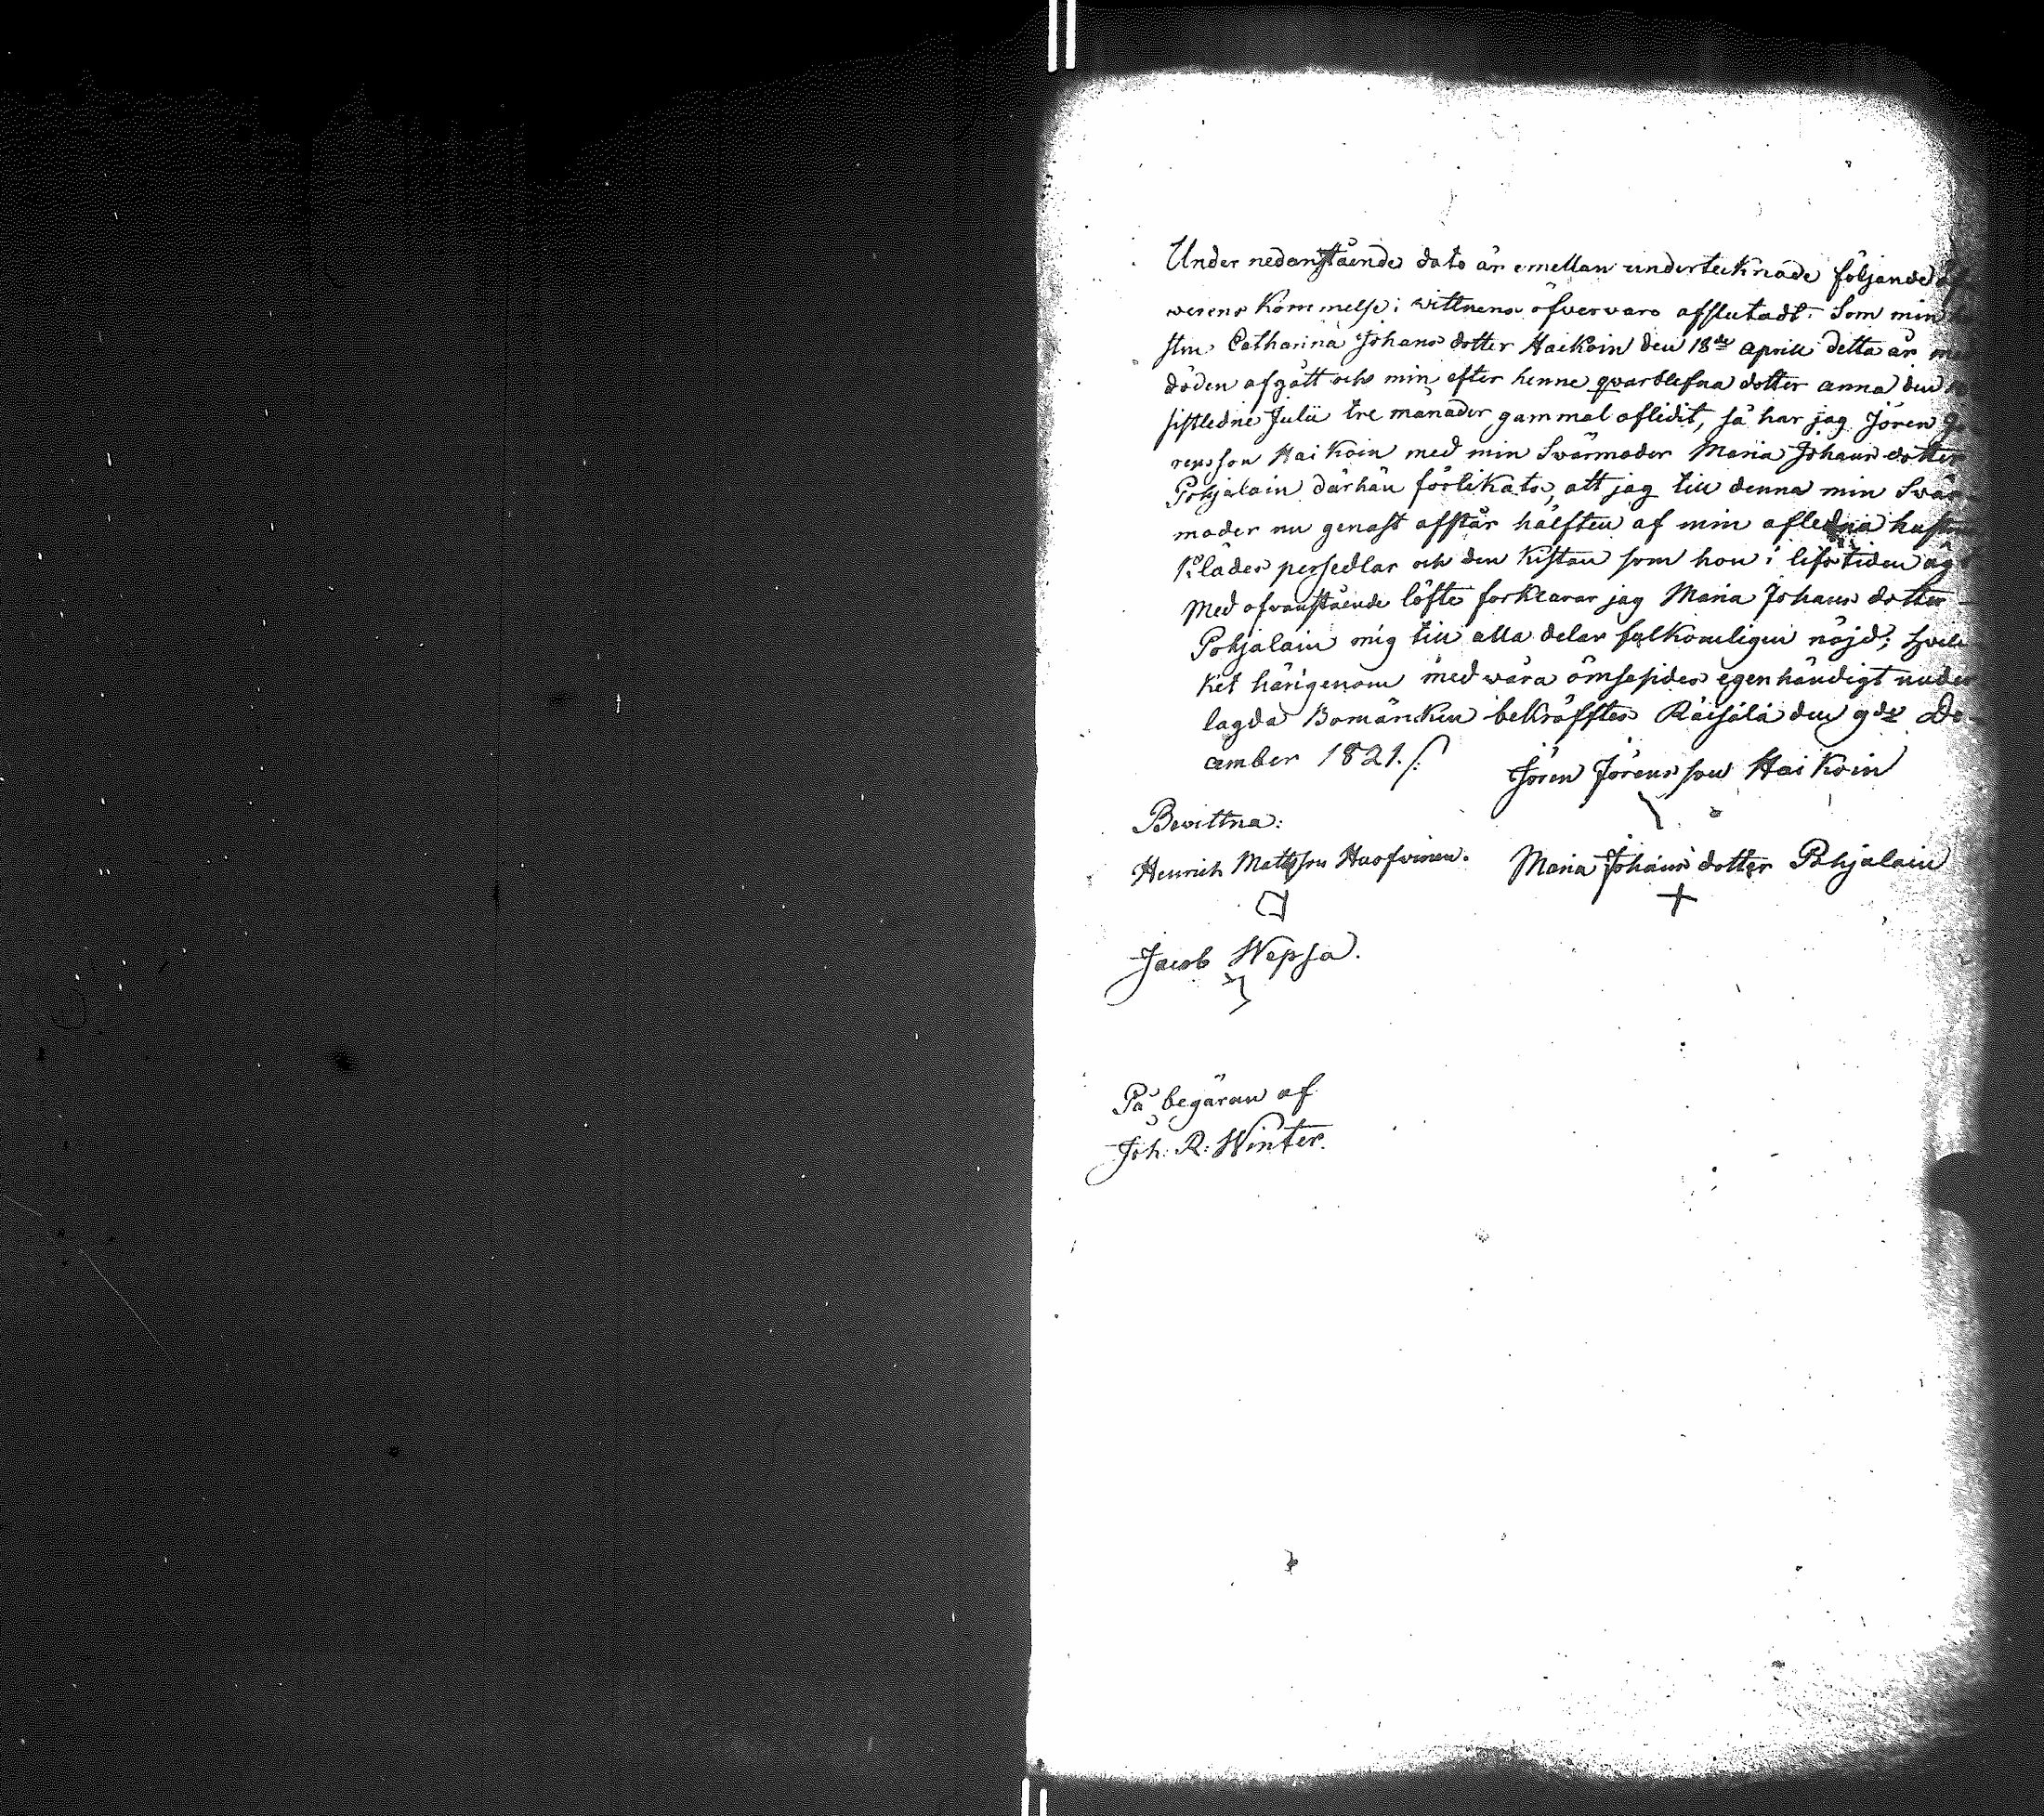 Under nedanstående dato är emellan undertecknade följande öf
verens kommelse i vittnens öfvervaro afslutadt: Som min hu
stru Catharina Johans dotter Haikoin den 18de aprill detta år med
döden afgått och min efter henne qvarblefna dotter anna den
sistledne Julii tre månader gammal aflidit, så har jag Jören Jö
rensson Haikoin med min Svärmoder Maria Johans dotter
Pohjalain därhän förlikats, att jag till denna min Svär
moder nu genast afstår hälften af min afledna hustrus
klädes persedlar och den kistan som hon i lifstiden ägt
Med ofvanstående löfte forklarar jag Maria Johans dotter
Pohjalain mig till alla delar fulkomligen nöjd; hvil
ket härigenom med wåra ömsesides egenhändigt under
lagda Bomärken bekräfftes Räisälä den 9de De
cember 1821.
Jören Jörensson Haikoin
Bevittna:
Henrich Matsson Haofvinen. Maria Johans dotter Pohjalain
Jacob Wepsa.
På begäran af
Joh: R: Winter.